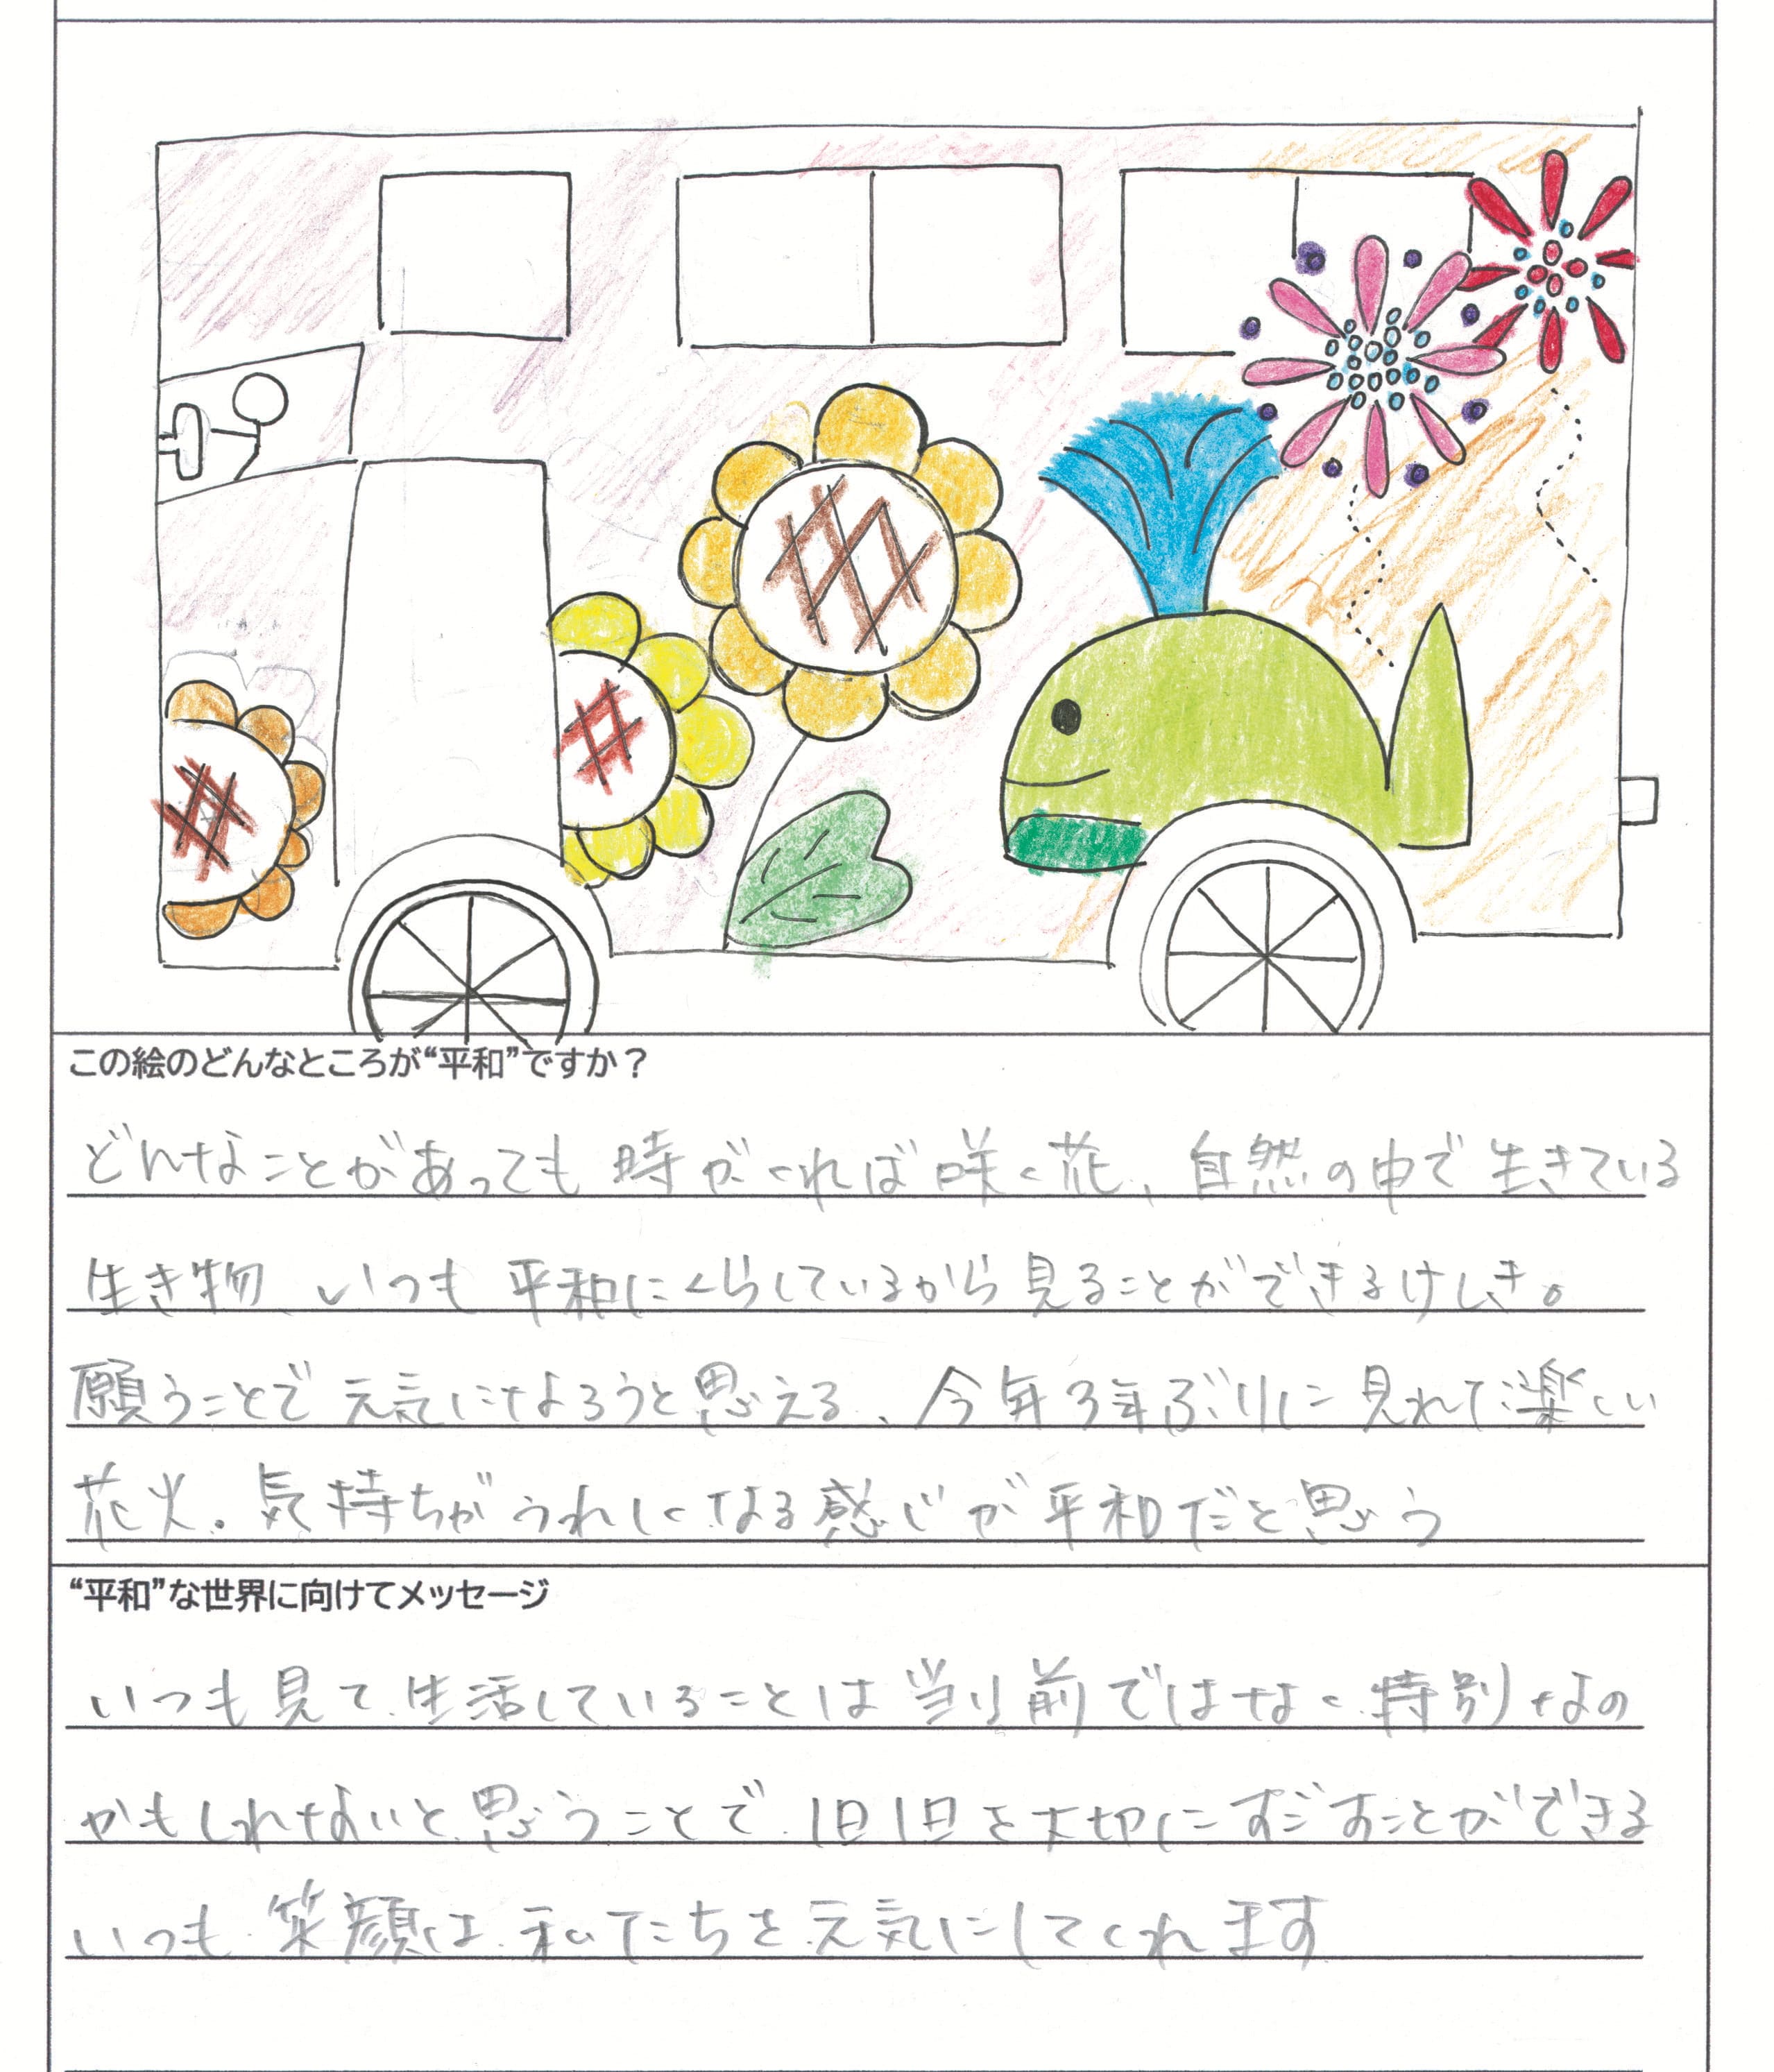 この絵のどんなところが“平和”ですか？
どんなことがあっても時がくれば咲く花、自然の中で生きている
生き物、いつも平和にくらしているから見ることができるけしき。
願うことで元気になろうと思える、今年3年ぶりに見れて楽しい
花火。気持ちがうれしくなる感じが平和だと思う
“平和”な世界に向けてメッセージ
いつも見て生活していることは当り前ではなく特別なの
かもしれないと思うことで1日1日を大切にすごすことができる
いつも笑顔は私たちを元気にしてくれます